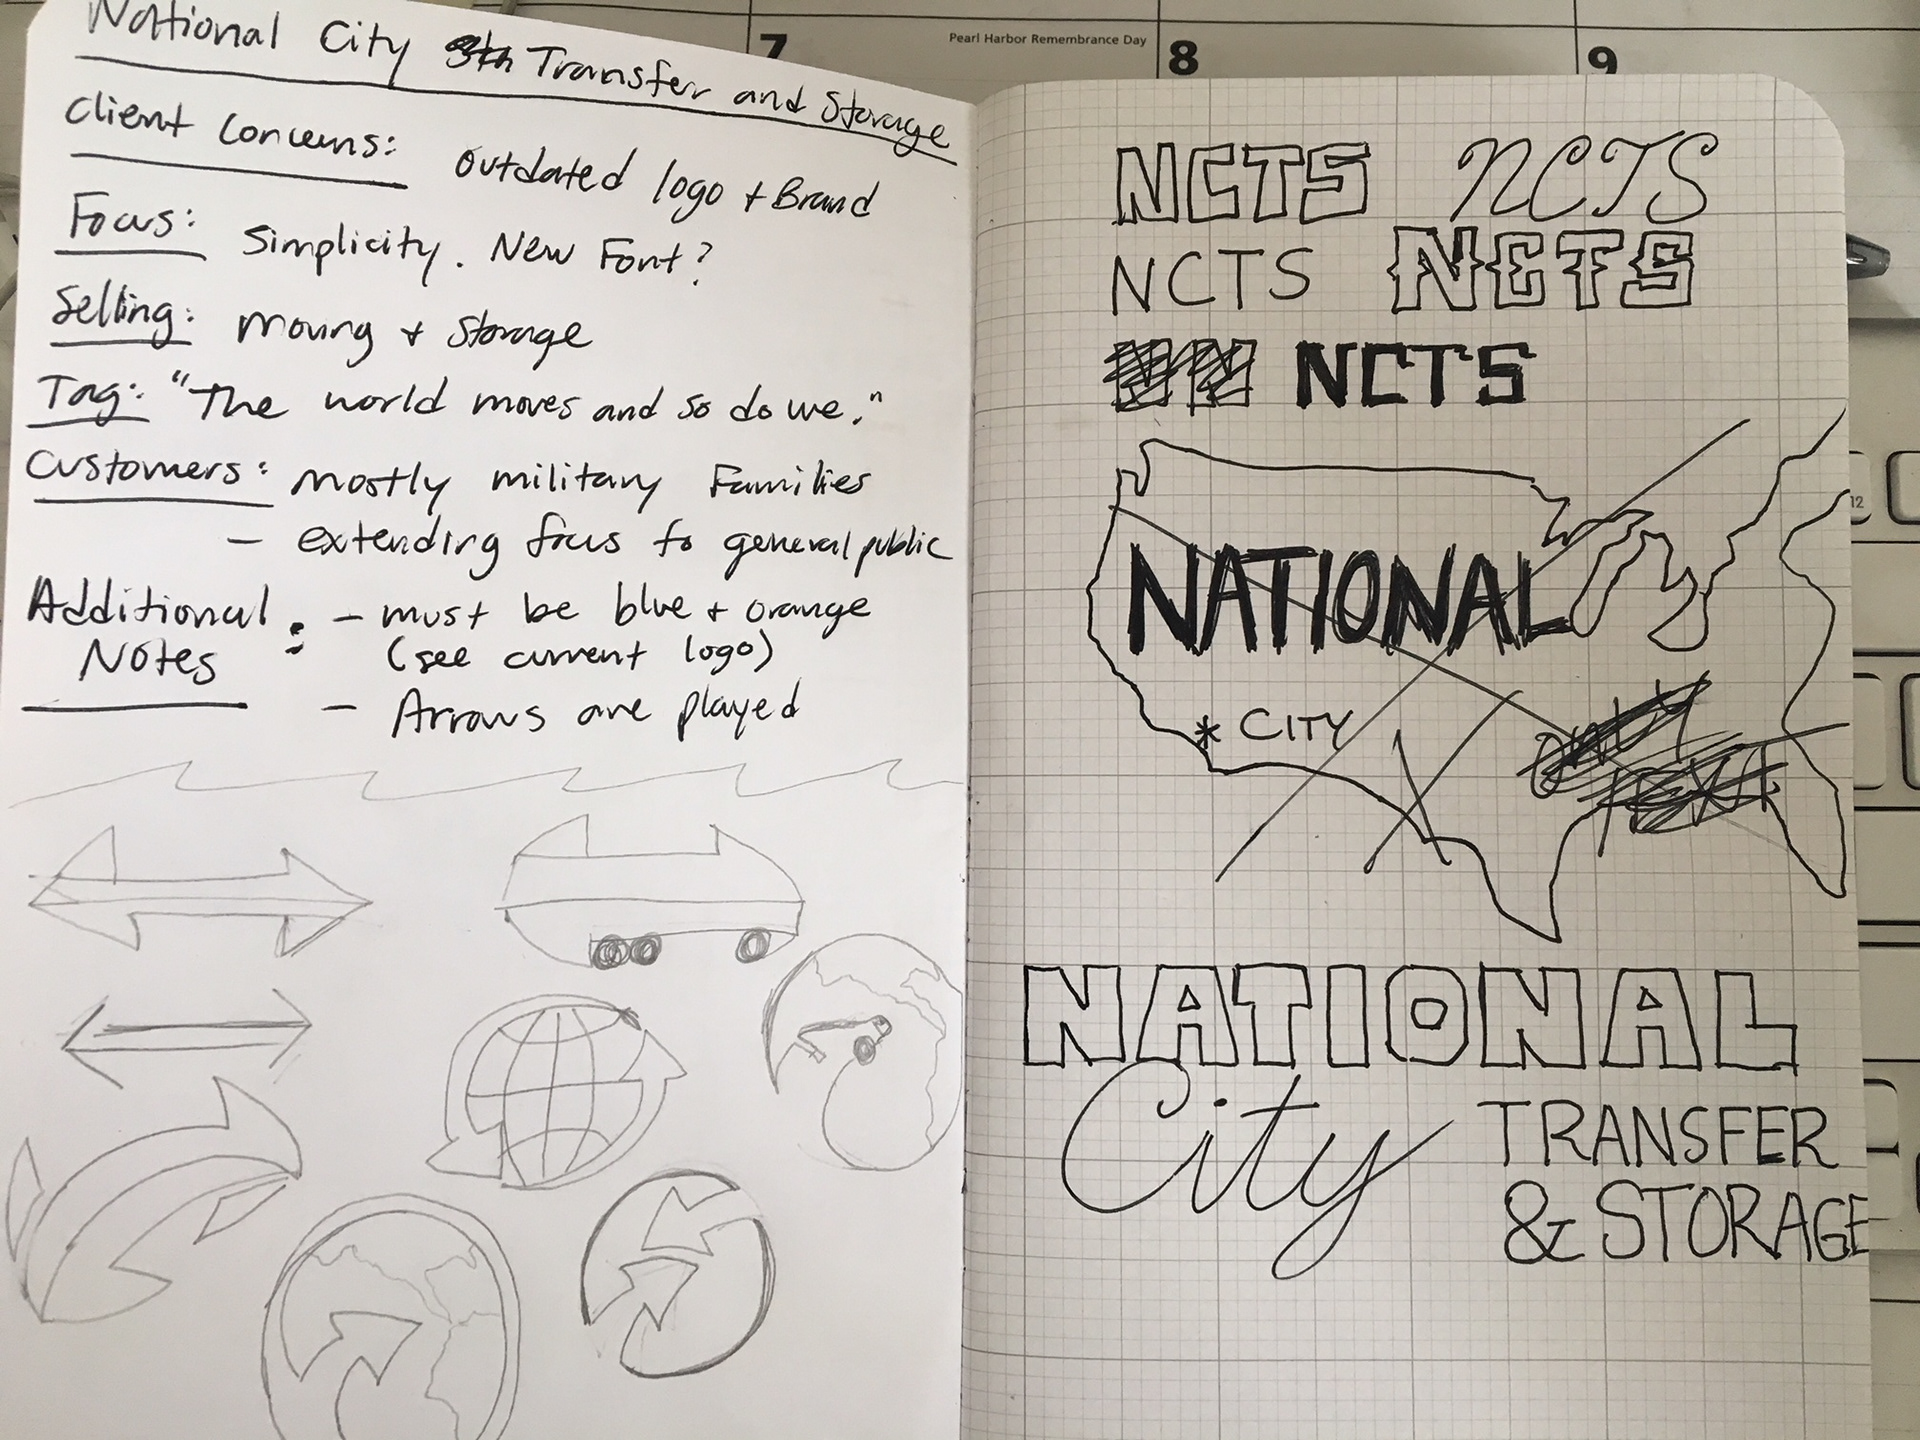 7
Pearl Harbor Remembrance Day
8
9
National City Transfer and Storage
Client Concerns: Outdated logo + Brand
Focus: Simplicity. New Font?
Selling: Moving + Storage
Tag: "The world moves and so do we."
Customers: Mostly military Families
- extending focus to general public
Additional Notes : - must be blue + orange
(see current logo)
- Arrows are played
NCTS NCTS
NCTS NCTS
NCTS
NATIONAL
* CITY
NATIONAL
City TRANSFER
& STORAGE
12